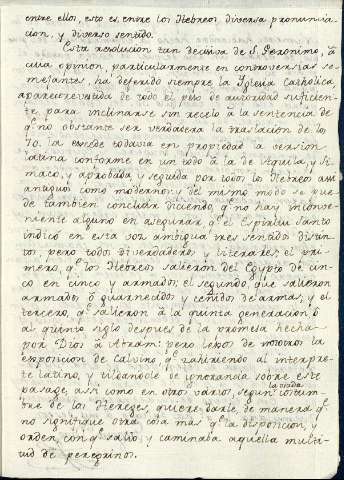 entre ellos, esto es, entre los Hebreos diversa pronuncia-
cion, y diverso sentido.
Esta resolucion tan decisiva de S. Geronimo, â
cuia opinion, particularmente en controversias se-
mejantes, ha deferido siempre la Yglesia Catholica,
aparece revestida de todo el peso de autoridad suficien-
te para inclinarse sin recelo â la sentencia de
q.e no obstante ser verdadera la traslacion de los
70. la excede todavia en propiedad la version
latina conforme en un todo â la de Aquila, y Si-
maco, y aprobada, y seguida por todos los Hebreos assi
antiguos como modernos; y del mismo modo se pue-
de tambien concluir diciendo q.e no hay inconve-
niente alguno en asegurar q.e el Espiritu Santo
indicó en esta voz ambigua tres sentidos distin-
tos, pero todos tres verdaderos, y literares; el pri-
mero, q.e los Hebreos salieron del Egypto de cin-
co en cinco, y armados; el segundo, que salieron
armados, ô guarnecidos, y ceñidos de armas; y el
tercero, q.e salieron â la quinta generacion ô
al quinto siglo despues de la promesa hecha
por Dios â Abram: pero lejos de nosotros la
exposicion de Calvino q.e zahiriendo al interpre-
te latino, y tildandole de ignorancia sobre este
pasage, assi como en otros varios, segun la osada costum-
bre de los Hereges, quiere darle, de manera q.e
no signifique otra cosa mas q.e la disposicion, y
orden, con q.e salió, y caminaba aquella multi-
tud de peregrinos.